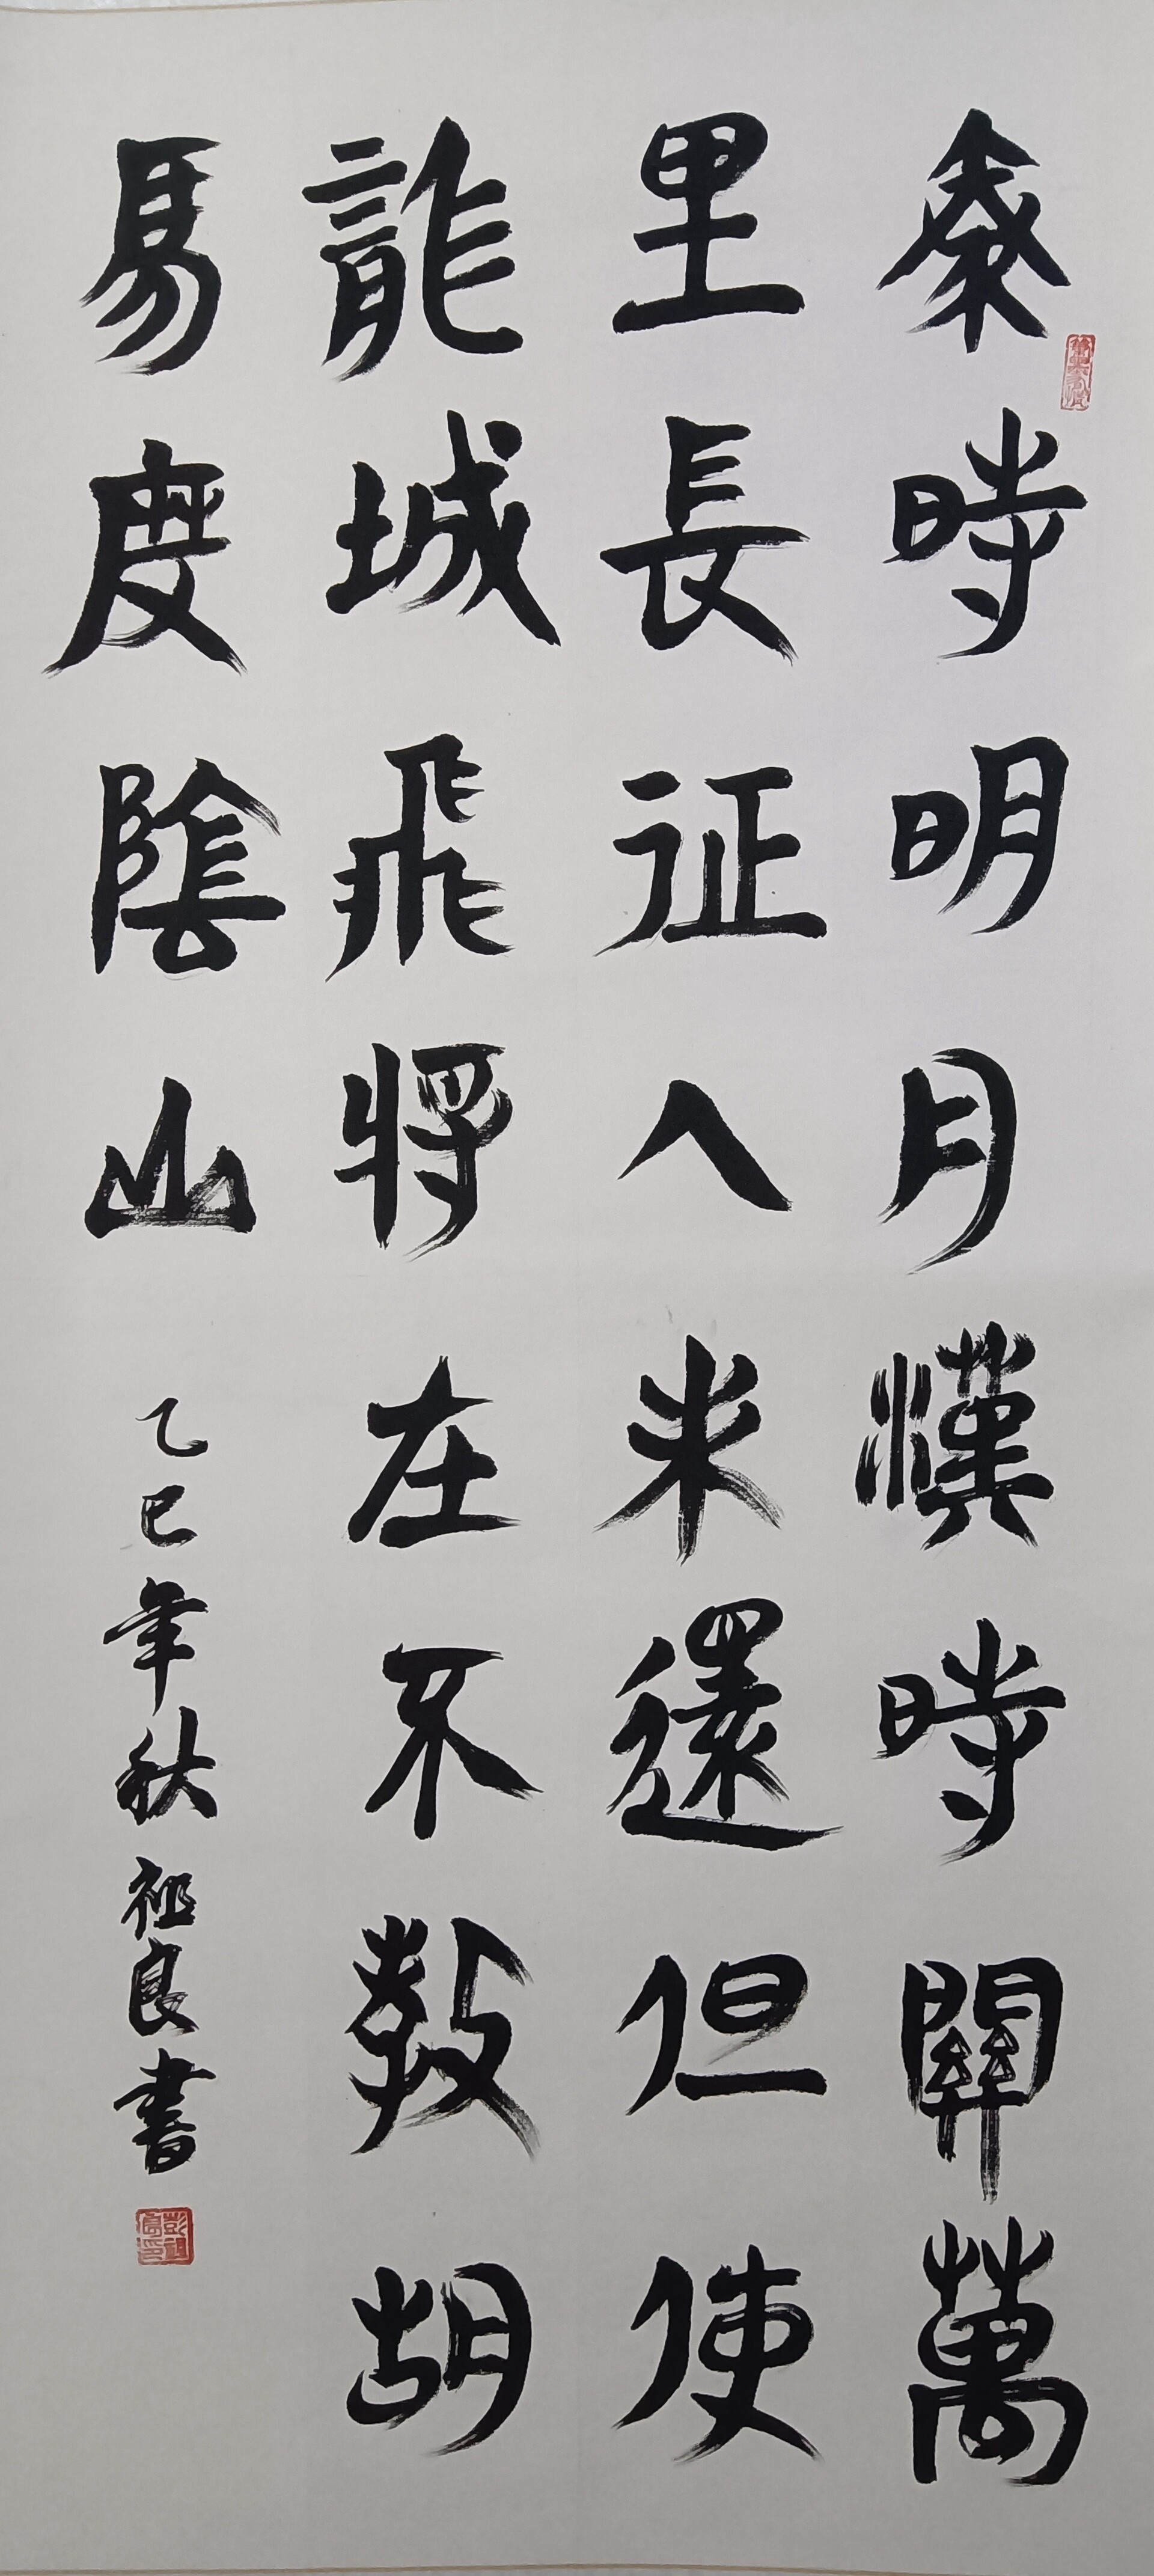 秦時明月漢時關萬
里長征人未還但使
龍城飛將在不教胡
馬度陰山
乙巳年秋祖良書
彭祖良印